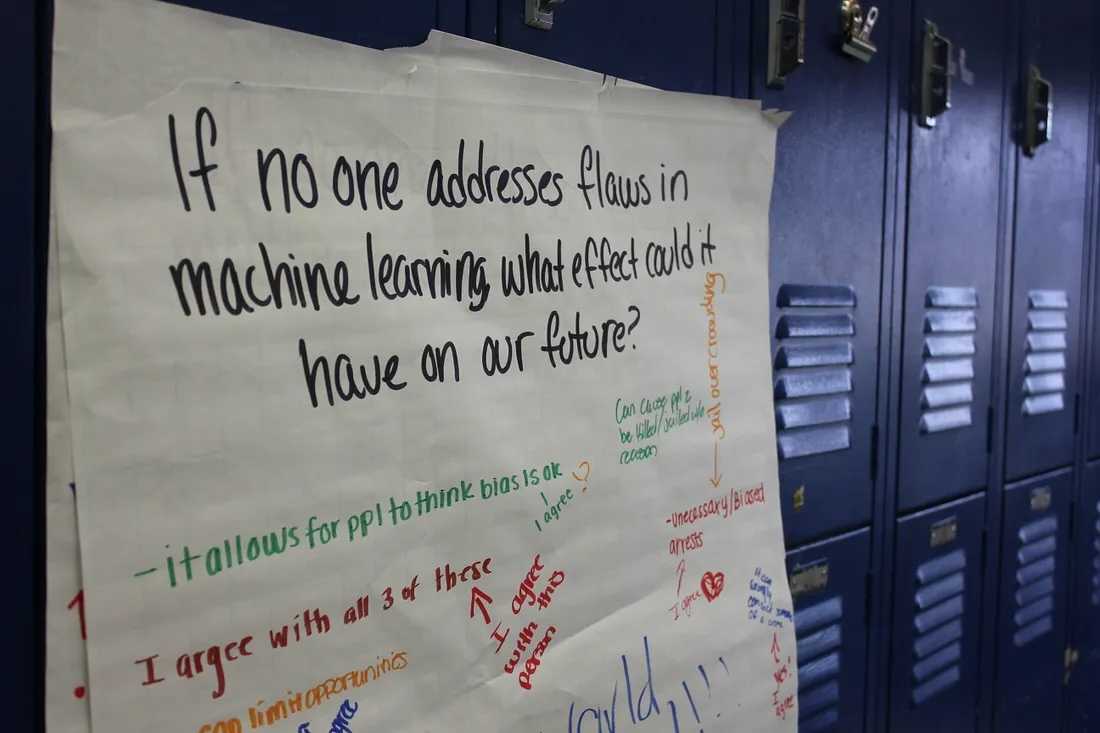 If no one addresses flaws in
machine learning, what effect could it
have on our future?
jail overcrowding
Can cause ppl 2
be killed/jailed w/o
reason
-it allows for ppl to think bias is ok
I agree
?
-unecessary/Biased
arrests
I agree
I argee with all 3 of these
I agree
this
with
person
it can
wrongly
convict
of a crime
yes!
I
agree
can limit opportunities
agree